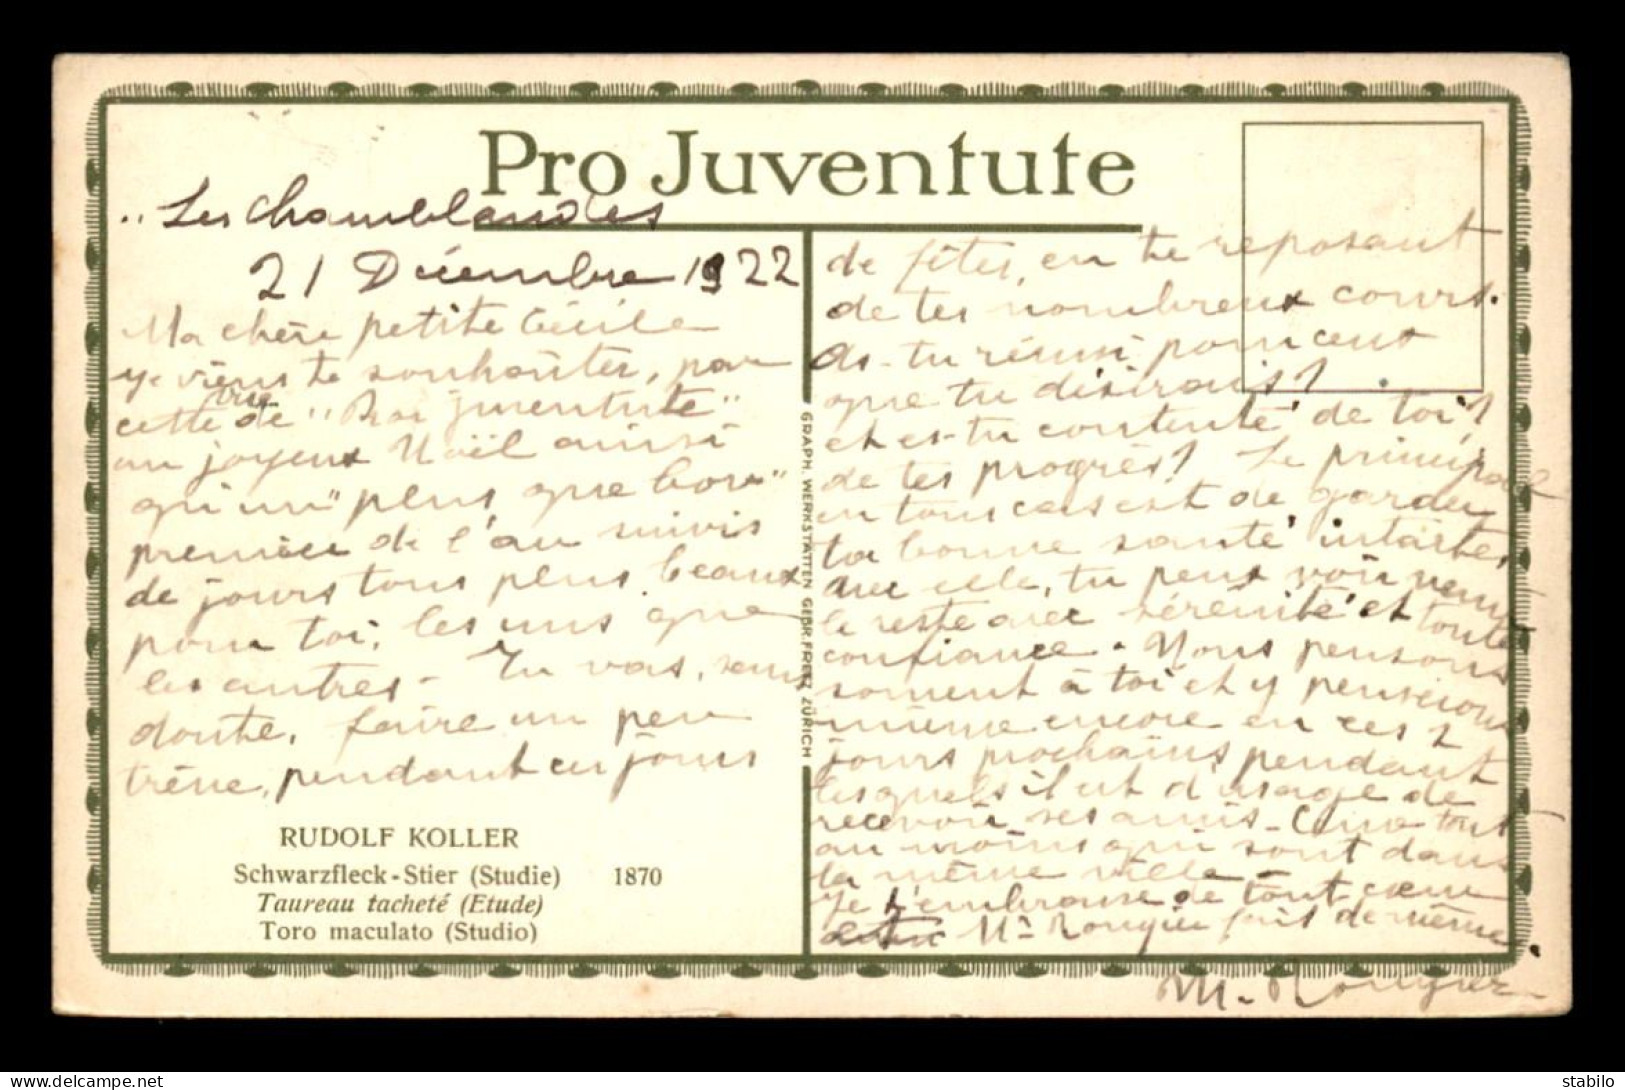 Pro Juventute
"Les Chamblandes
21 Décembre 1922
Ma chère petite Cécile
je viens te souhaiter, par
cette vue de "Pro juventute"
un joyeux Noël ainsi
qu'un "plus que bon"
premier de l'an suivis
de jours tous plus beaux
pour toi, les uns que
les autres - Tu vas, sans
doute, faire un peu
trêve, pendant ces jours
RUDOLF KOLLER
Schwarzfleck-Stier (Studie) 1870
Taureau tacheté (Etude)
Toro maculato (Studio)
GRAPH. WERKSTÄTTEN GEBR. FRETZ ZÜRICH
de fêtes, en te reposant
de tes nombreux cours.
As-tu réussi pour ceux
que tu désirais?
et es-tu contente de toi?
de tes progrès? Le principal
en tous cas est de garder
ta bonne santé intacte,
avec elle, tu peux voir venir
le reste avec sérénité et toute
confiance. Nous pensons
souvent à toi et y penserons
même encore en ces 2
jours prochains pendant
lesquels il est d'usage de
recevoir ses amis -
au moins qui sont dans
la même ville -
Je t'embrasse de tout coeur
Mr Rougier fait de même.
M. Rougier
stabilo